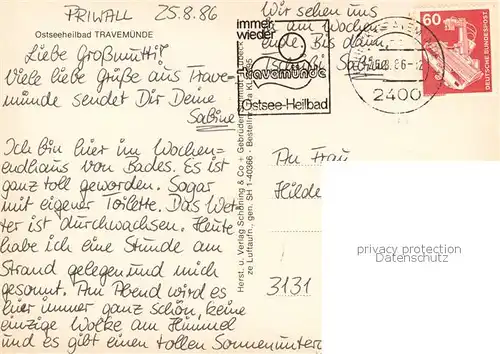 PRIWALL 25.8.86
Ostseeheilbad TRAVEMÜNDE
Liebe Großmutti!
Viele liebe Grüße aus Trave-
münde sendet Dir Deine
Sabine
Ich bin hier im Wochen-
endhaus von Bades. Es ist
ganz toll geworden. Sogar
mit eigener Toilette. Das Wet-
ter ist durchwachsen. Heute
habe ich eine Stunde am
Strand gelegen und mich
gesonnt. Am Abend wird es
hier immer ganz schön, keine
einzige Wolke am Himmel
und es gibt einen tollen Sonnenunter
Wir sehen uns
am Wochen-
ende. Bis dann
Tschüß
immer
wieder
travemünde
Ostsee-Heilbad
2400
60
DEUTSCHE BUNDESPOST
Herst. u. Verlag Schöning & Co + Gebrüder Schmidt, Lübeck
ze Luftaufn., gen. SH 1-40366 - Bestellnr.
An Frau
Hilde
3131
privacy protection
Datenschutz